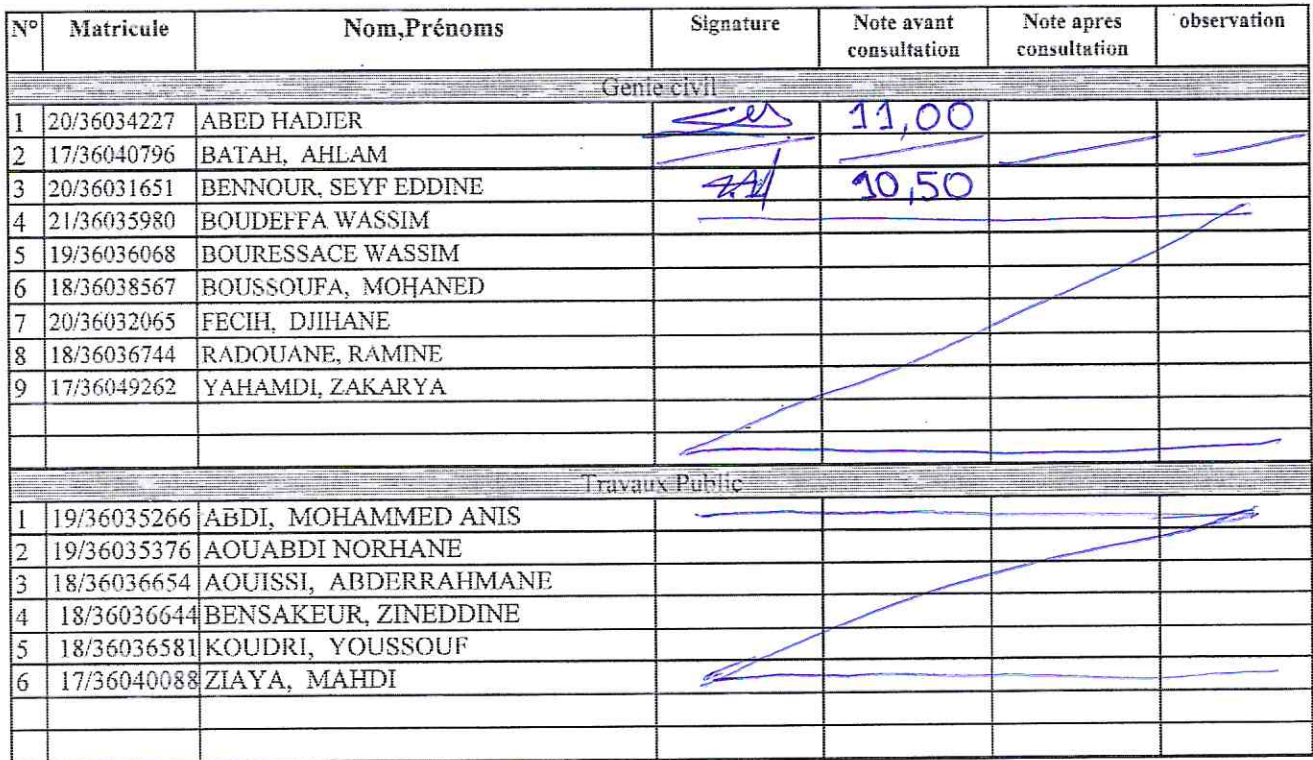 N° Matricule Nom,Prénoms Signature Note avant consultation Note apres consultation observation
Genie civil
1 20/36034227 ABED HADJER 11,00
2 17/36040796 BATAH, AHLAM
3 20/36031651 BENNOUR, SEYF EDDINE 10,50
4 21/36035980 BOUDEFFA WASSIM
5 19/36036068 BOURESSACE WASSIM
6 18/36038567 BOUSSOUFA, MOHANED
7 20/36032065 FECIH, DJIHANE
8 18/36036744 RADOUANE, RAMINE
9 17/36049262 YAHAMDI, ZAKARYA
Travaux Public
1 19/36035266 ABDI, MOHAMMED ANIS
2 19/36035376 AOUABDI NORHANE
3 18/36036654 AOUISSI, ABDERRAHMANE
4 18/36036644 BENSAKEUR, ZINEDDINE
5 18/36036581 KOUDRI, YOUSSOUF
6 17/36040088 ZIAYA, MAHDI